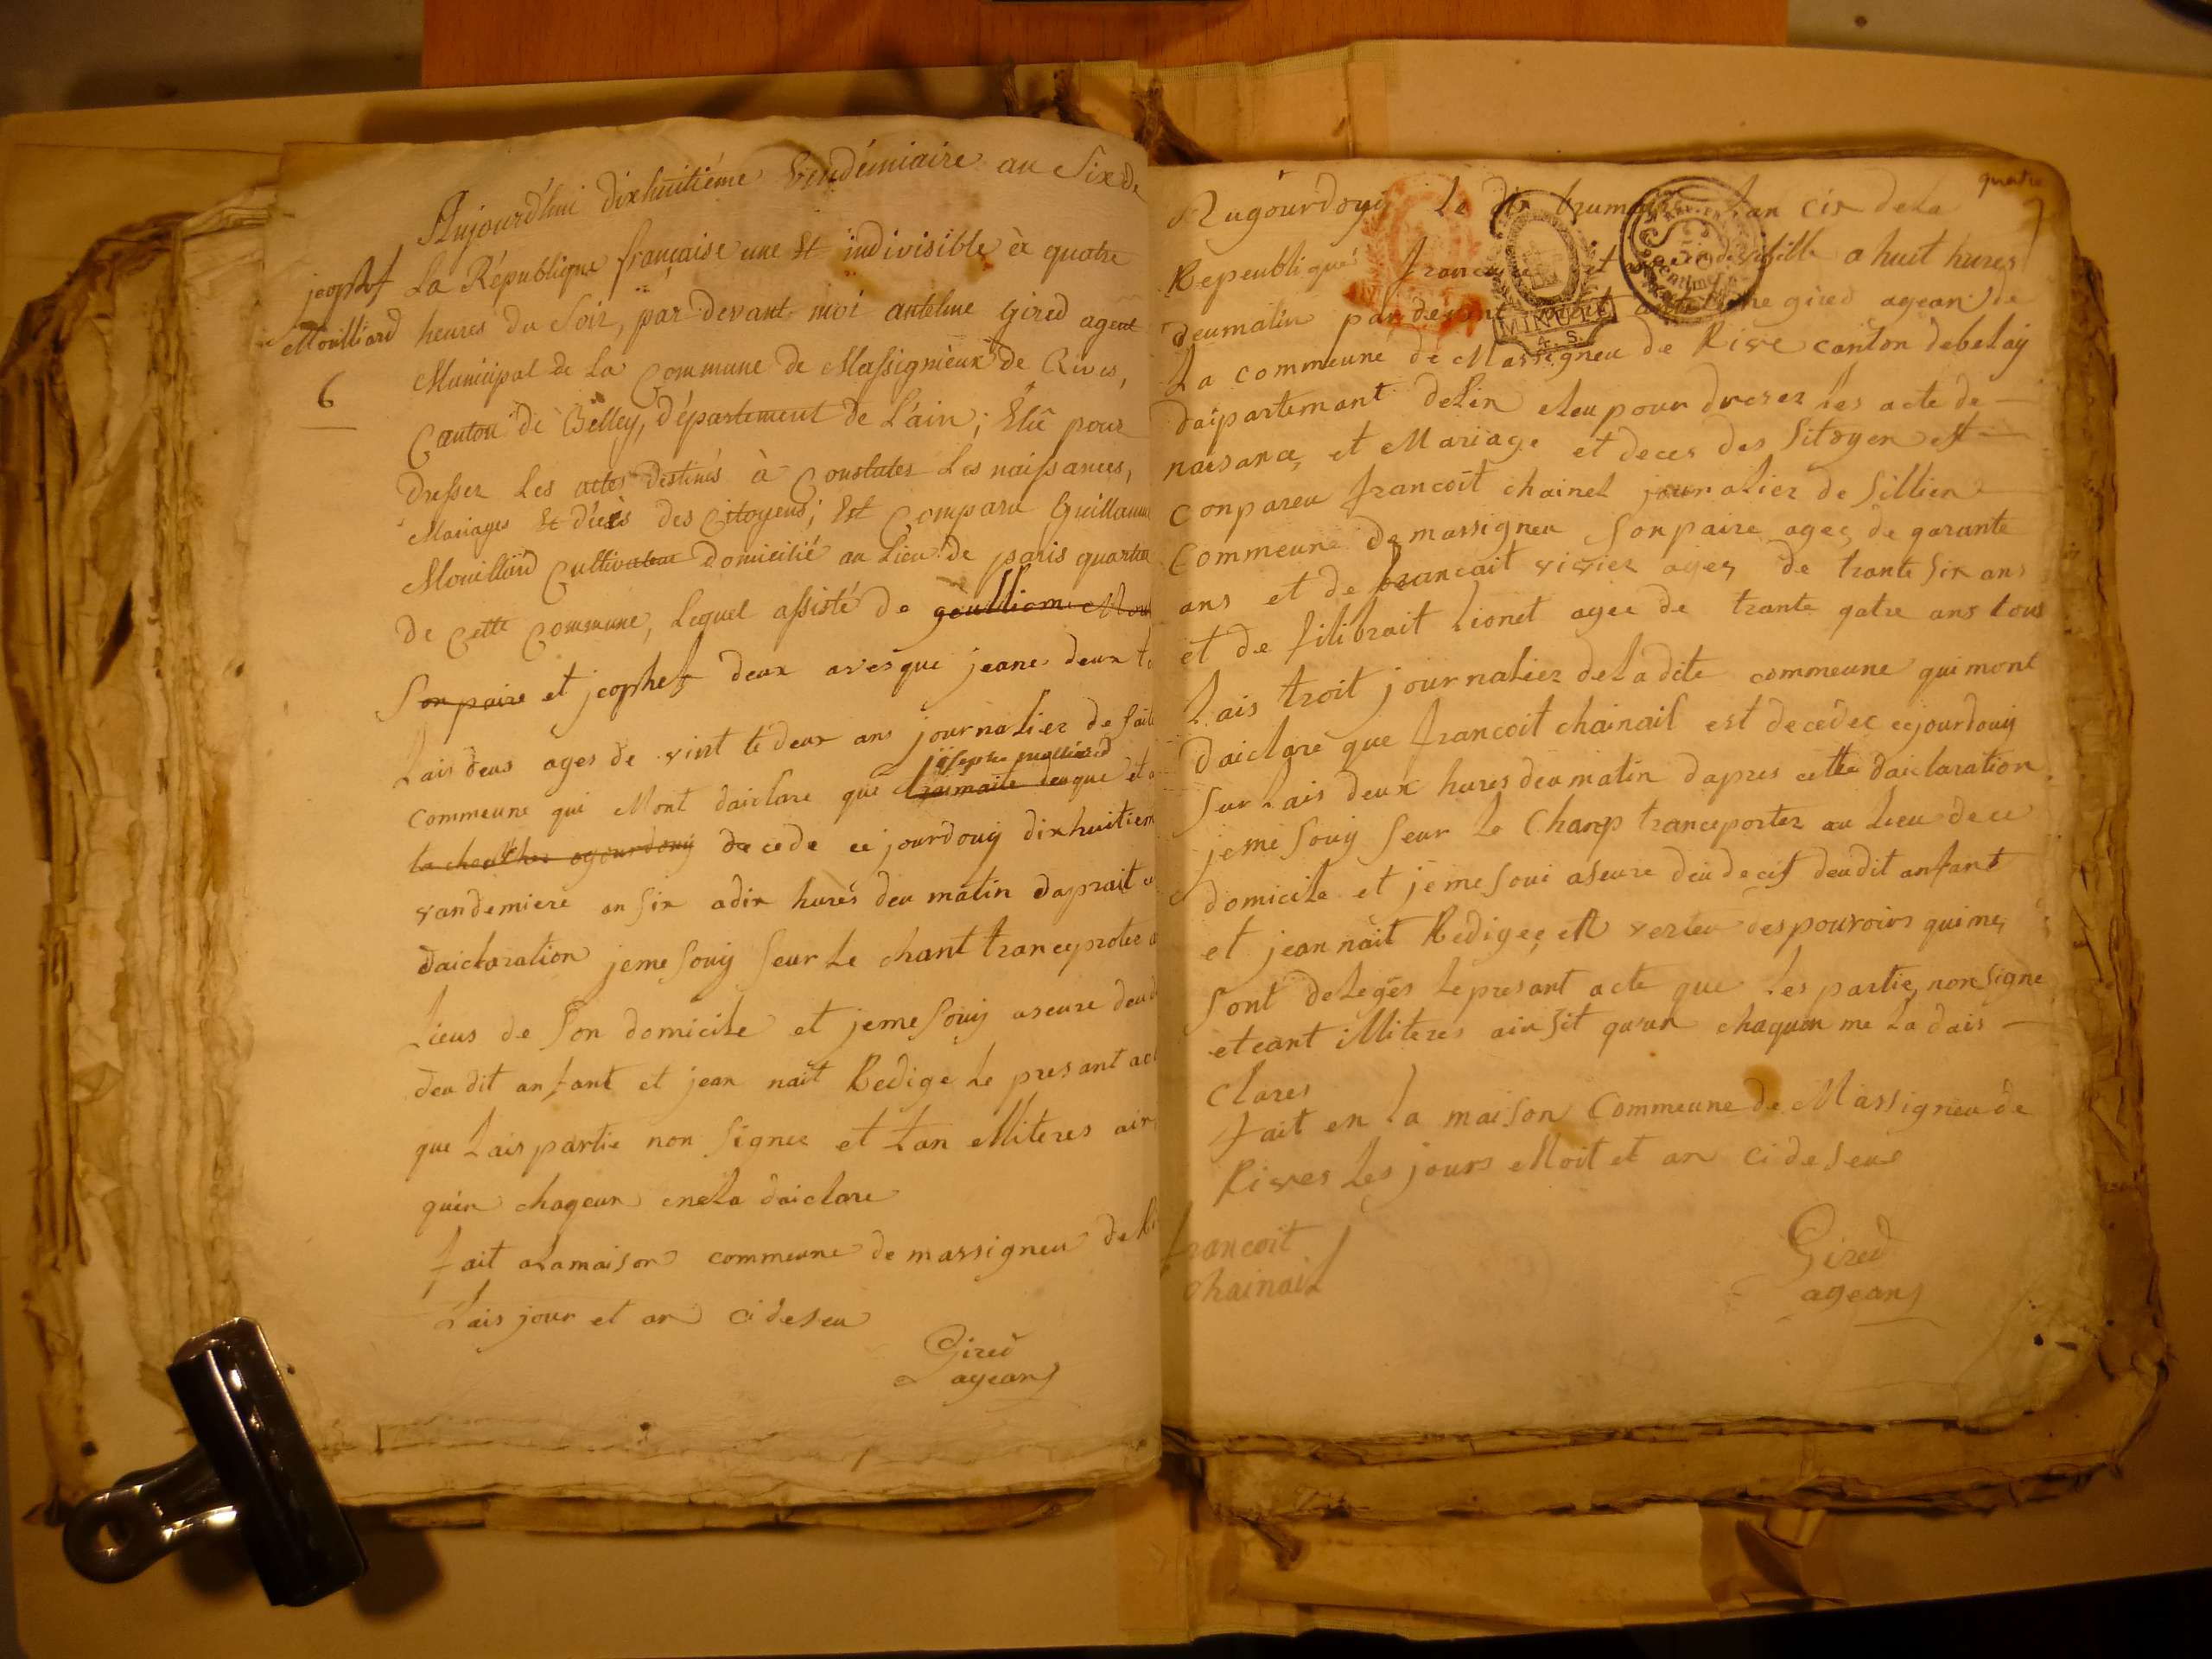 Aujourd'hui dixhuitiéme Vendémiaire an Six de
La République française une Et indivisible à quatre
heures du Soir, par devant moi antelme Gired agent
Municipal de La Commune de Massignieux de Rives,
Canton de Belley, département de L'ain; Elû pour
dresser Les actes destinés à Constater Les naissances,
Mariages Et décès des Citoyens; Est Comparu Guillaume
Mouilliard Cultivateur domicilié au Lieu de paris quartier
de Cette Commune, Lequel assisté de geulliome Mou
Son paire et jeophef deux avesque jeane deux t
Lais deus ages de vint té deux ans journalier de
josephe
commeune qui Mont daiclare que
ogourdouy de cede ce jourdouy dixhuitiem
vandemiere an six adix hures deu matin daprait
daiclaration jeme souy seur le chant
Lieus de Son domicile et jeme souy aseure deu
deu dit anfant et jean nait Redige Le presant act
que Lais partie non Signee et tan elliteres
quin chaqeun mela daiclare
fait alamaison commeune de massigneu de
Lais jour et an ci deseu
Gired
agean
jeophef
Mouilliard
6
quatre
Augourdouy Le dix brumaire Lan cix dela
Repeublique et a huit hures
deumatin pardevent gired agean de
La commeune de Massigneu de Rive canton debelay
daipartemant delin eleu pour dreser les acte de
naisance et Mariage et deces des Sitoyen est
conpareu francoit chainel journalier de Sillien
Commeune de massigneu son paire agee de garante
ans et de francait vivier agee de trante six ans
et de filibrait Lionet agee de trante gatre ans tous
Lais troit journalier dela dite commeune qui mont
daiclare que francoit chainail est decedee cejourdouy
sur Lais deux hures deumatin dapres cette daiclaration
jeme souy seur Le Champ tranceporter au Lieu de ce
domicile et jeme soui aseure deudecest deudit anfant
et jean nait Redigee en verteu des pouvoirs quime
sont deleges Le presant acte que les partie non signe
eteant illiteres ain sit quun chaquun me la dais
clares
fait en la maison Commeune de Massigneu de
Rives Les jours Moit et an ci deseus
francoit
chainail
Gired
agean